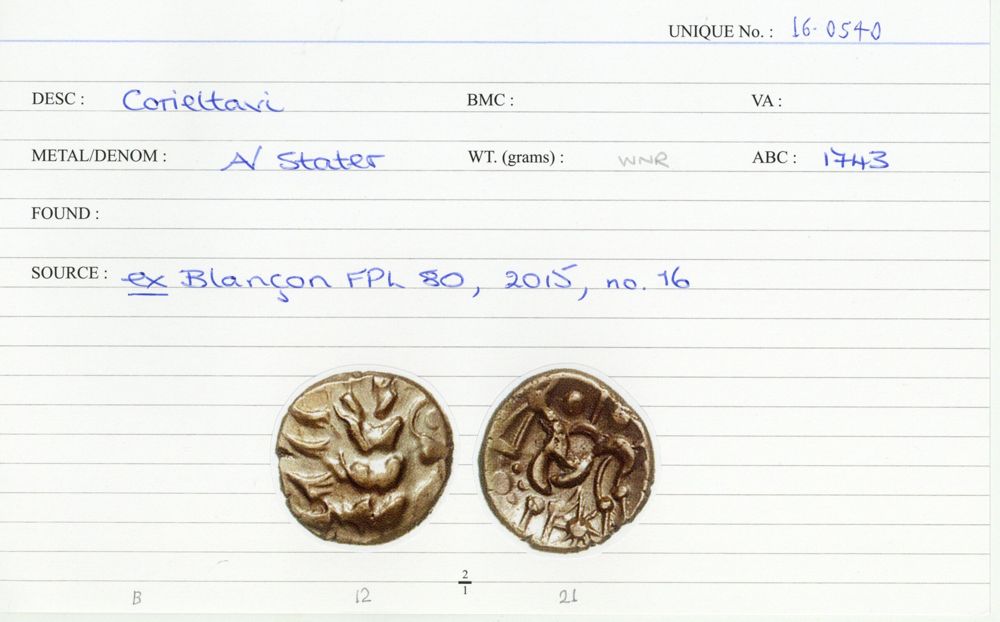 UNIQUE No. : 16-0540
DESC : Corieltavi BMC : VA :
METAL/DENOM : A/ Stater WT. (grams) : WNR ABC : 1743
FOUND :
SOURCE : ex Blançon FPL 80, 2015, no. 16
2
1
B 12 21